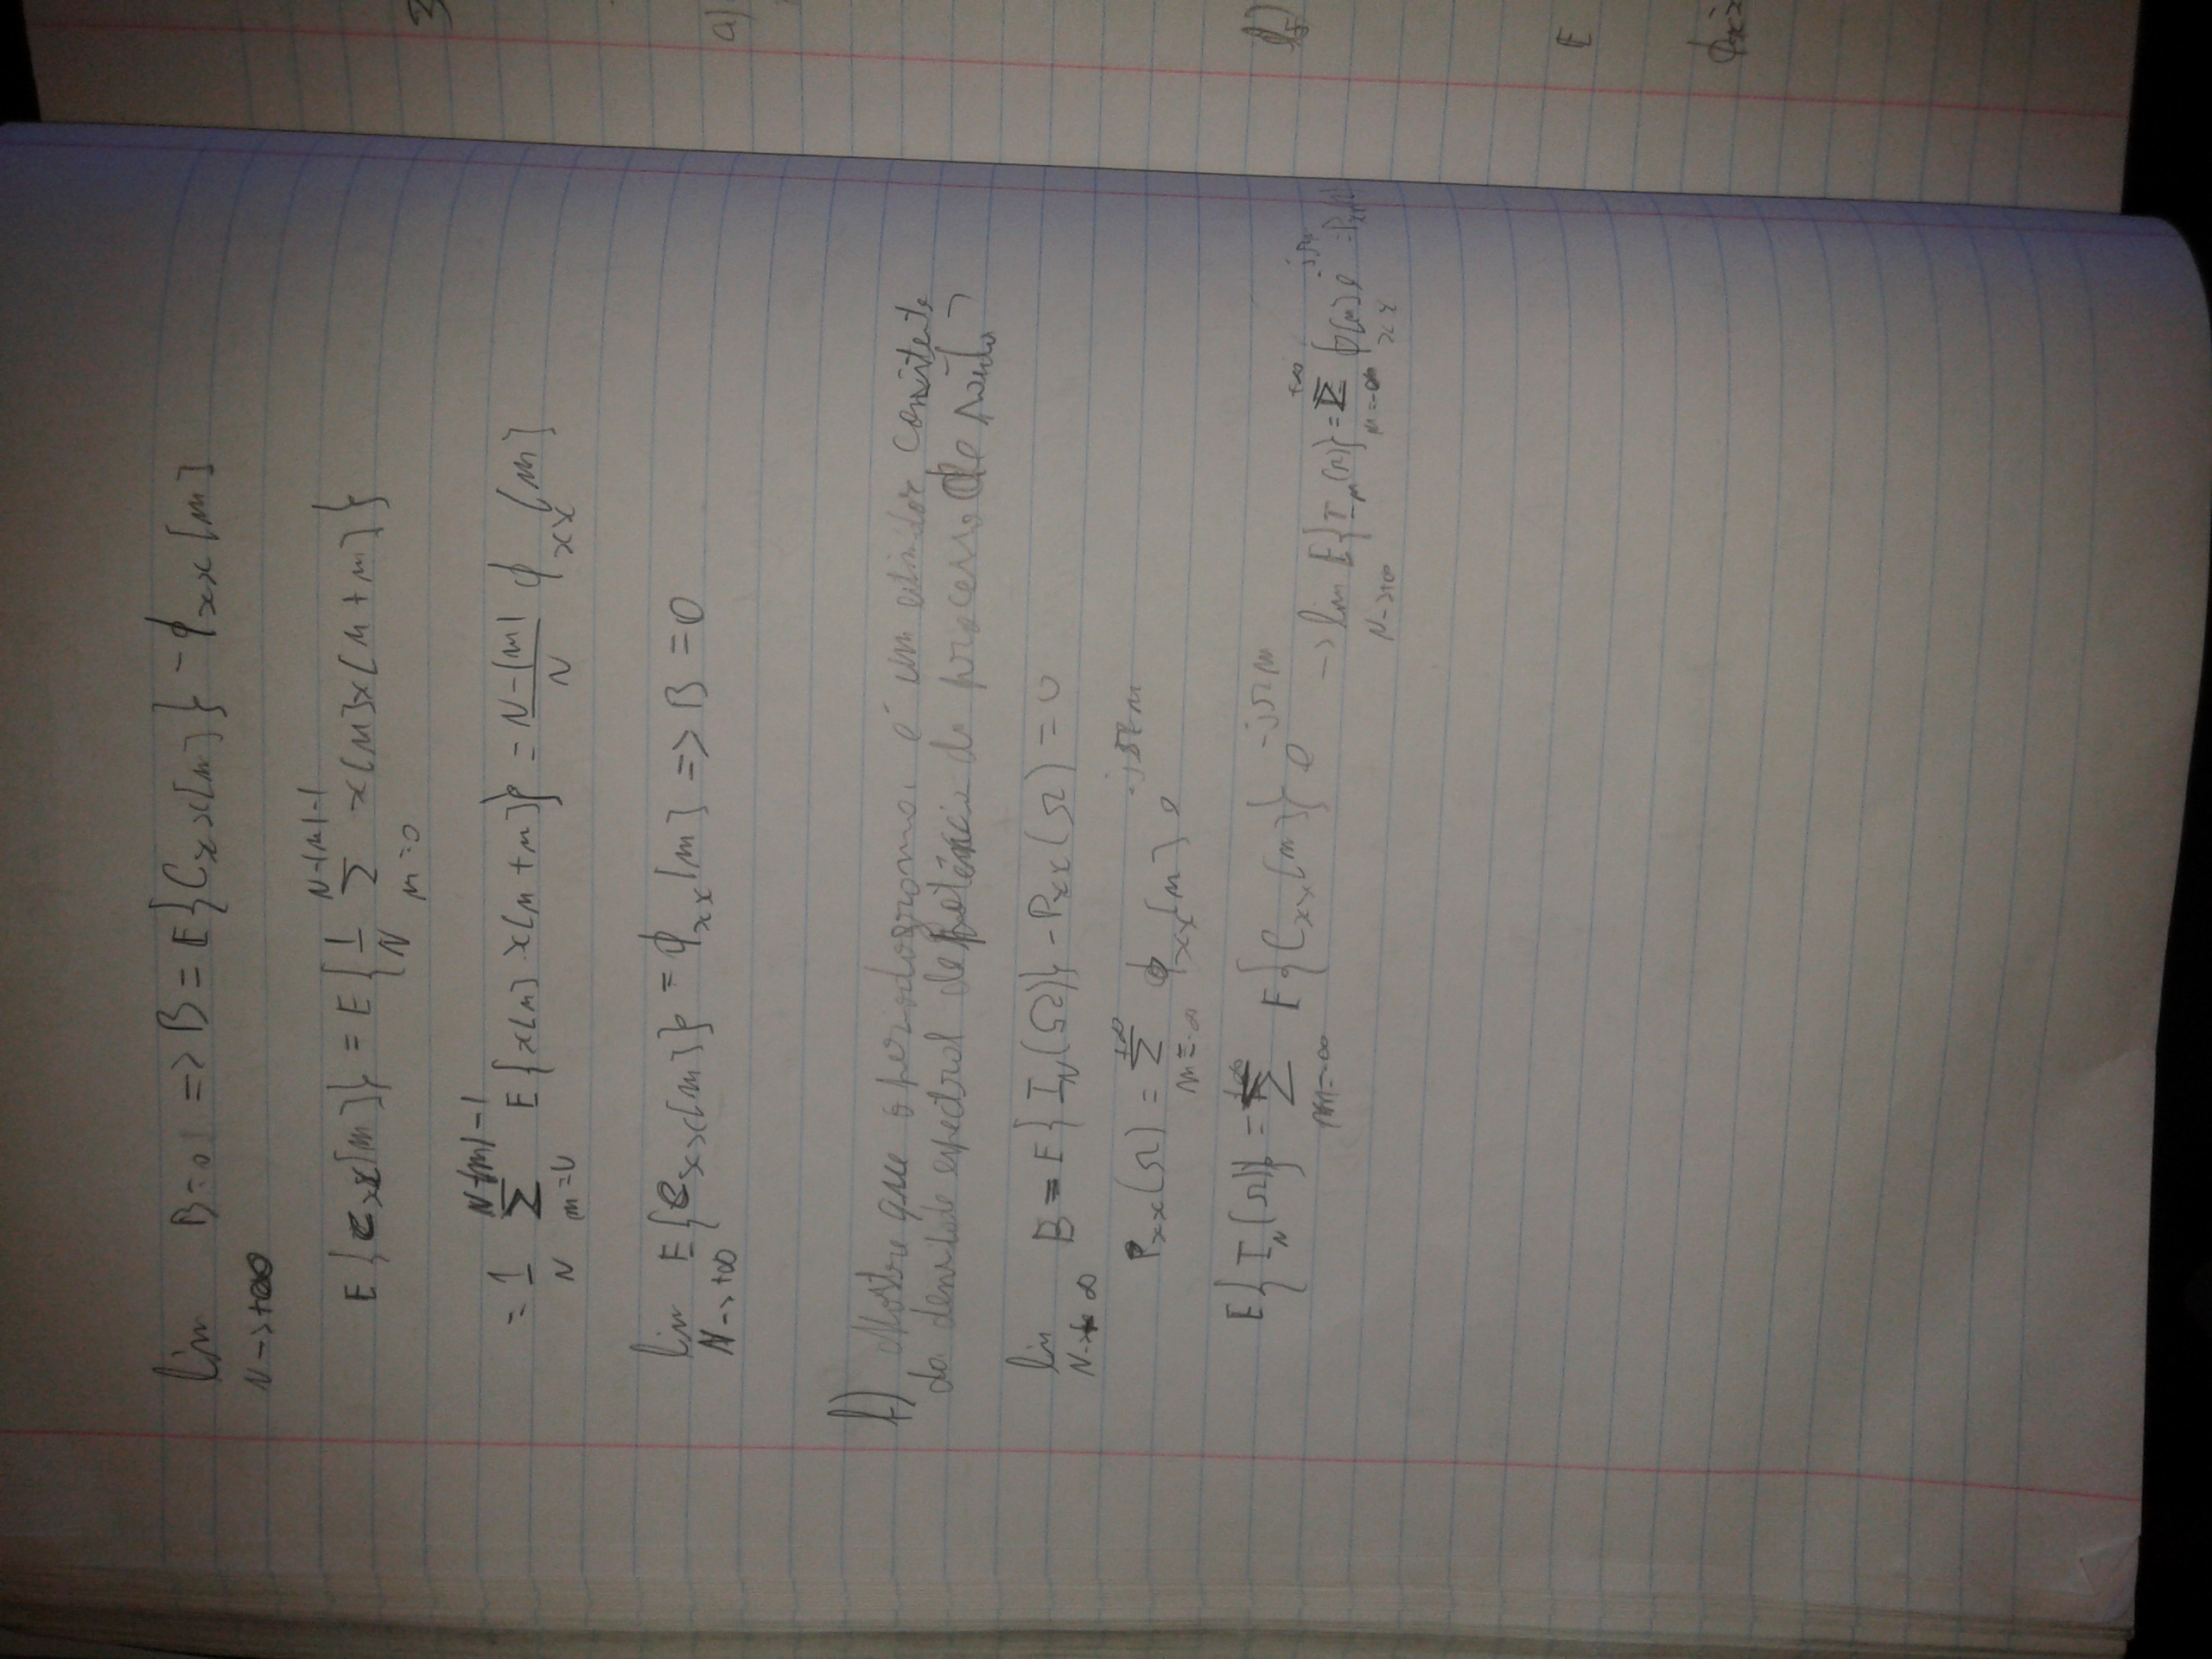 lim B=0 => B = E{Cxx[m]} - ϕxx[m]
N->+∞
E{Cxx[m]} = E{1/N Σ_{n=0}^{N-|m|-1} x[n]x[n+m]}
= 1/N Σ_{m=0}^{N-|m|-1} E{x[n] x[n+m]} = N-|m|/N ϕxx[m]
lim E{Cxx[m]} = ϕxx[m] => B = 0
N->+∞
f) Mostre que o periodograma é um estimador consistente
da densidade espectral de potência do processo de saída
lim B = E{I_N(Ω)} - Pxx(Ω) = 0
N->+∞
Pxx(Ω) = Σ_{m=-∞}^{+∞} ϕxx[m] e^{-jΩm}
E{I_N(Ω)} = Σ_{m=-∞}^{+∞} E{Cxx[m]} e^{-jΩm}
-> lim E{I_N(Ω)} = Σ_{m=-∞}^{+∞} ϕxx[m] e^{-jΩm} = Pxx(Ω)
N->+∞
3
a)
b)
E
ϕxx